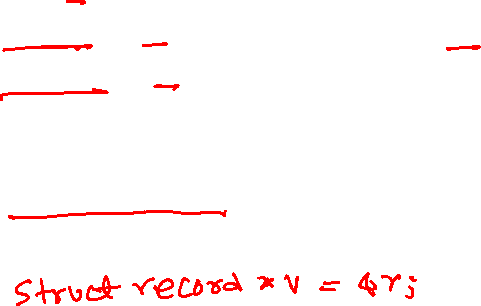 struct record *v = &r;